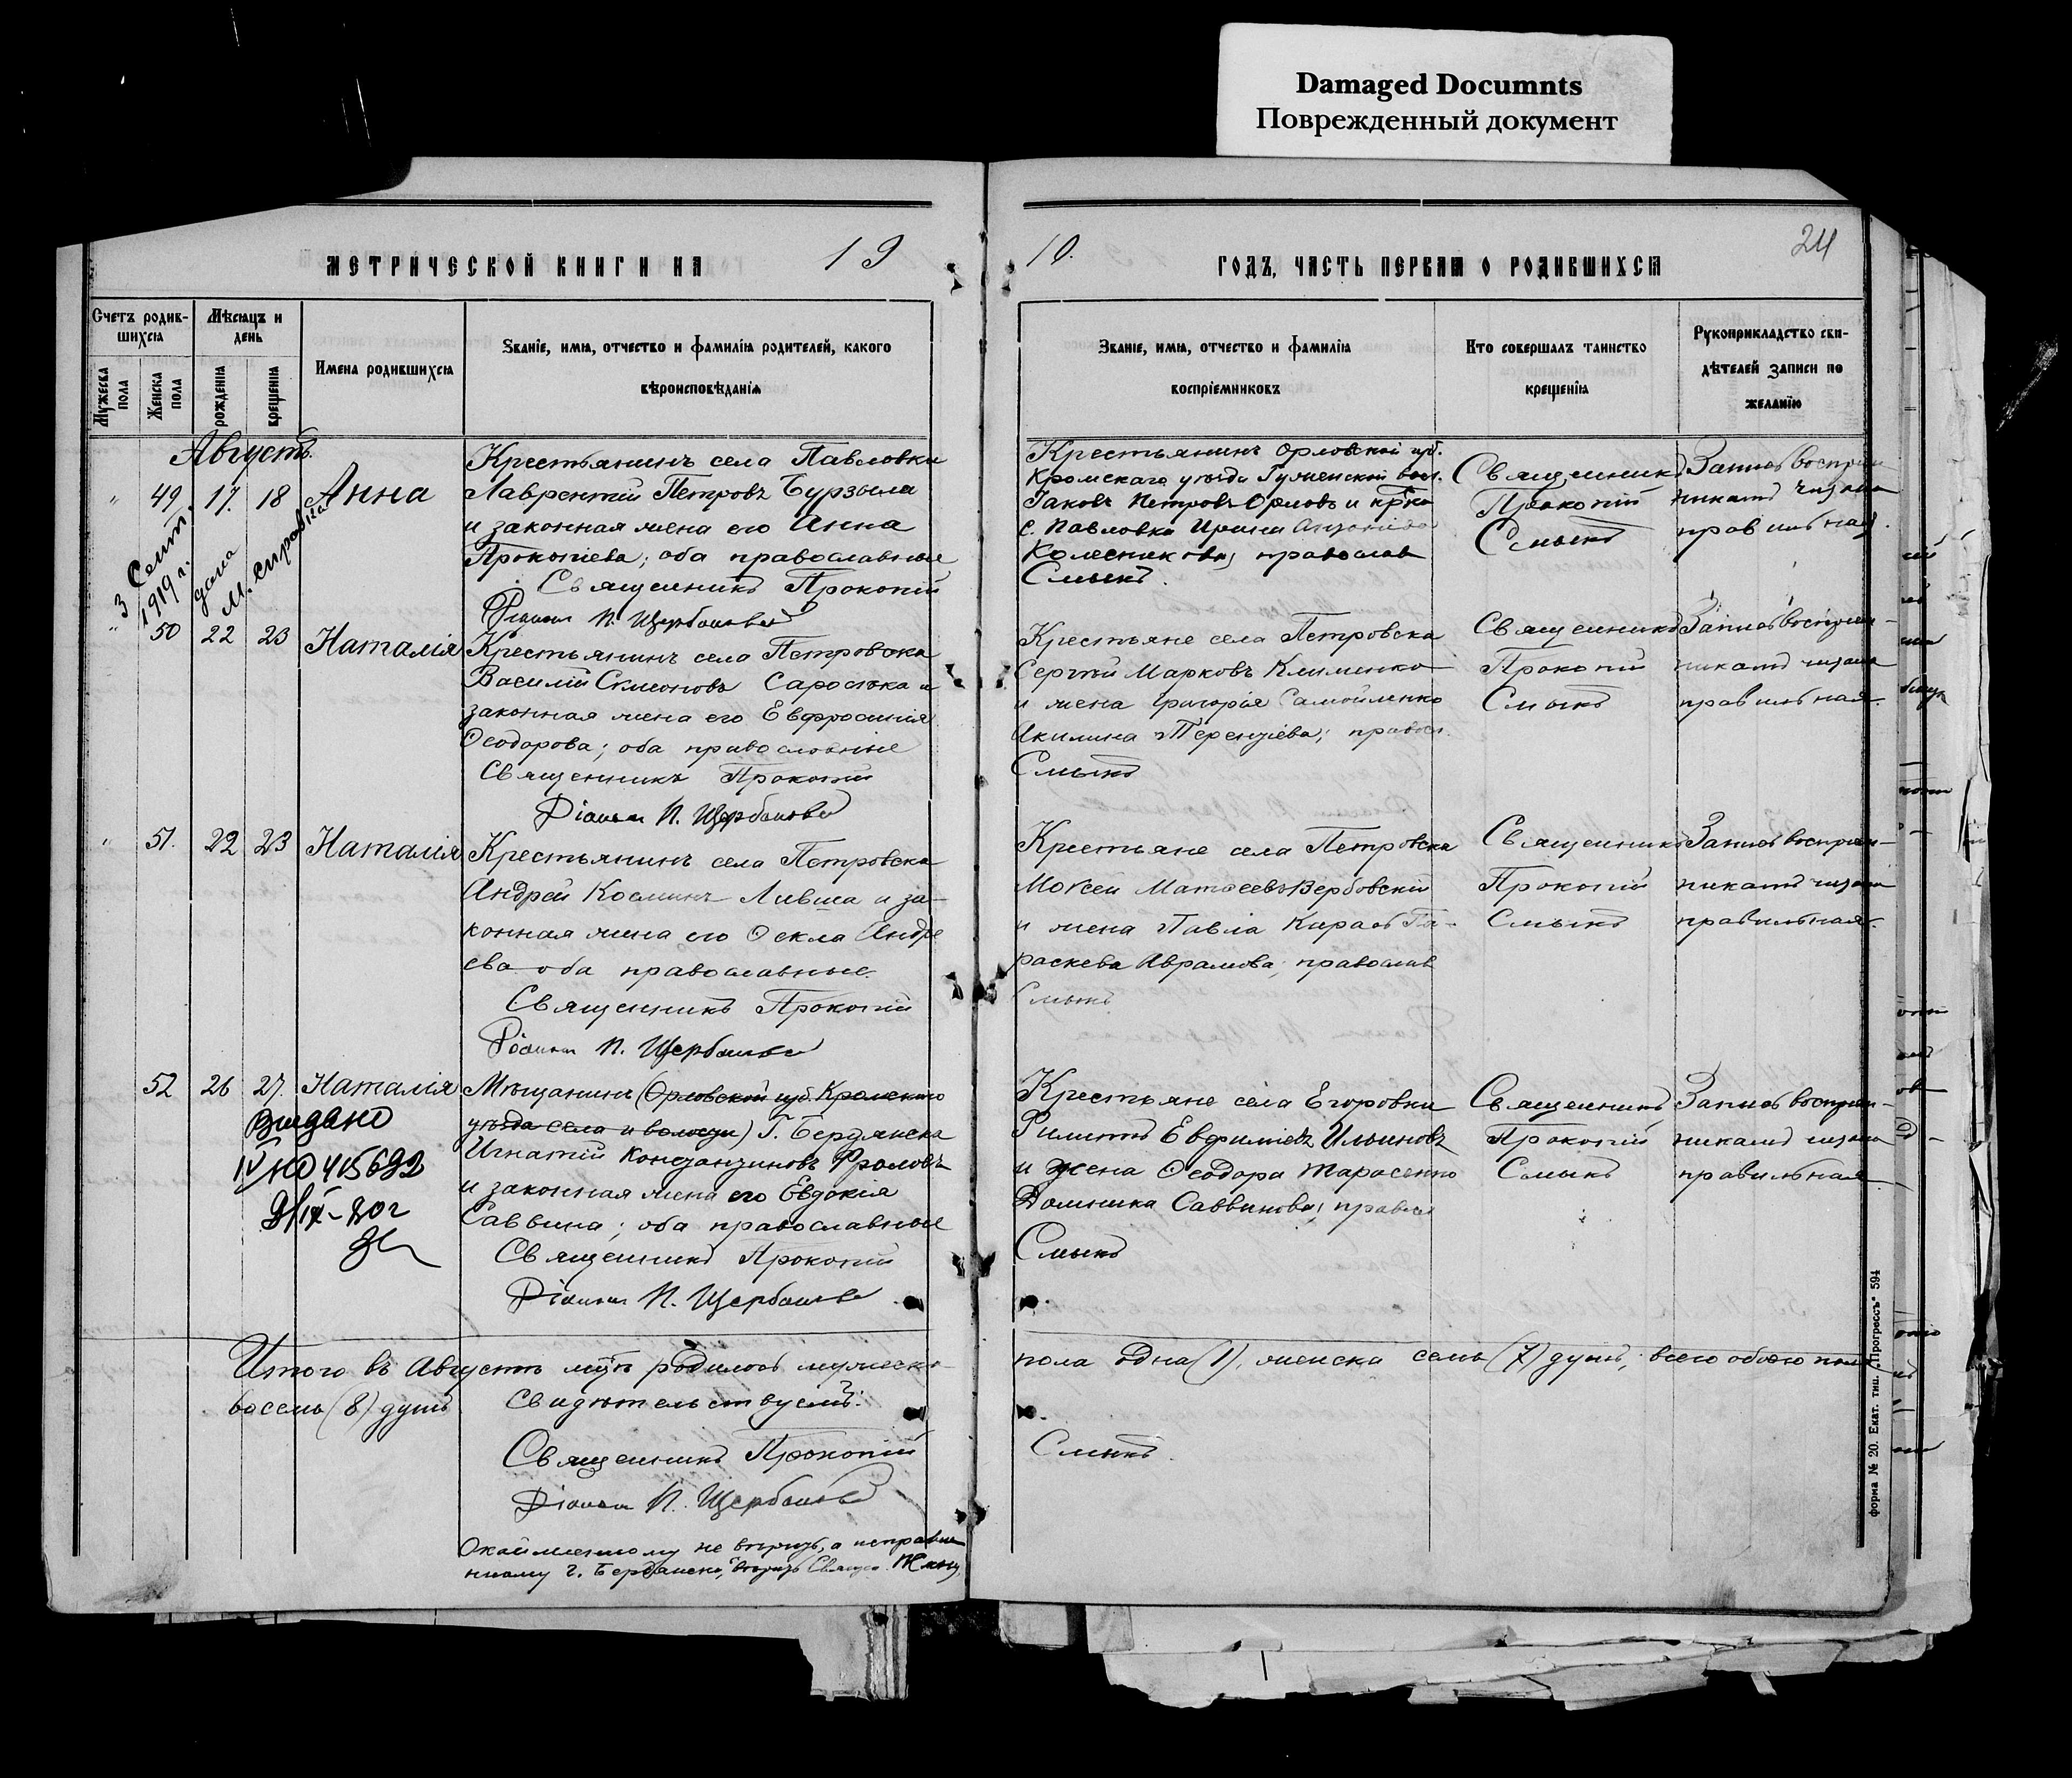 Damaged Documnts
Поврежденный документ
МЕТРИЧЕСКОЙ КНИГИ НА 19
10. ГОДЪ, ЧАСТЬ ПЕРВАЯ О РОДИВШИХСЯ
24
Счетъ родив-
шихся
Мѣсяцъ и
день
Мужеска
пола
Женска
пола
рожденія
крещенія
Имена родившихся
Званіе, имя, отчество и фамилія родителей, какого
вѣроисповѣданія
Званіе, имя, отчество и фамилія
воспріемниковъ
Кто совершалъ таинство
крещенія
Рукоприкладство сви-
дѣтелей записи по
желанію
Августъ.
" 49 17. 18 Анна
3 Сент.
1919 г.
дана
М. справка
Крестьянинъ села Павловки
Лаврентій Петровъ Бурзыла
и законная жена его Анна
Прокопіева; оба православные
Священникъ Прокопій
Діаконъ П. Щербаковъ
Крестьянинъ Орловской губ.
Кромскаго уѣзда Гуменской вол.
Іаковъ Петровъ Орловъ и кр-ка
с. Павловки Ирина
Колесникова; православ
Смыкъ.
Священникъ
Прокопій
Смыкъ
Запись воспріем-
никами читана
правильная.
" 50 22 23 Наталія
Крестьянинъ села Петровска
Василій Симеоновъ Саросѣка и
законная жена его Евфросинія
Ѳеодорова; оба православные
Священникъ Прокопій
Діаконъ П. Щербаковъ
Крестьяне села Петровска
Сергѣй Марковъ Клименко
и жена Григорія Самойленко
Акилина Терентіева; правосл.
Смыкъ
Священникъ
Прокопій
Смыкъ
Запись воспріем-
никами читана
правильная.
" 51. 22 23 Наталія
Крестьянинъ села Петровска
Андрей Косминъ Ливша и за-
конная жена его Ѳекла Андре
ева оба православные.
Священникъ Прокопій
Діаконъ П. Щербаковъ
Крестьяне села Петровска
Моѵсей Матѳеевъ Вербовскій
и жена Павла Карась Па-
раскева Аврамова; православ
Смыкъ
Священникъ
Прокопій
Смыкъ
Запись воспріем-
никами читана
правильная.
52 26 27. Наталія
Выдано
IV НО 415692
IX-20г
Мѣщанинъ (Орловской губ. Кромского
уѣзда села и волости) г. Бердянска
Игнатій Константиновъ Фроловъ
и законная жена его Евдокія
Саввина; оба православные
Священникъ Прокопій
Діаконъ П. Щербаковъ
Крестьяне села Егоровки
Филиппъ Евфиміевъ Ильиновъ
и жена Ѳеодора Тарасенко
Домника Саввинова; правосл
Смыкъ
Священникъ
Прокопій
Смыкъ
Запись воспріем-
никами читана
правильная
Итого въ Августѣ м-цѣ родилось мужеска
пола одна (1), женска семь (7) душъ; всего обоего пола
восемь (8) душъ
Свидѣтельствуемъ:
Священникъ Прокопій
Смыкъ.
Діаконъ П. Щербаковъ
Окаймленному не вѣрить, а исправле
нному "г. Бердянска" вѣрить Священ.
форма № 20. Екат. тип. „Прогрессъ" 594